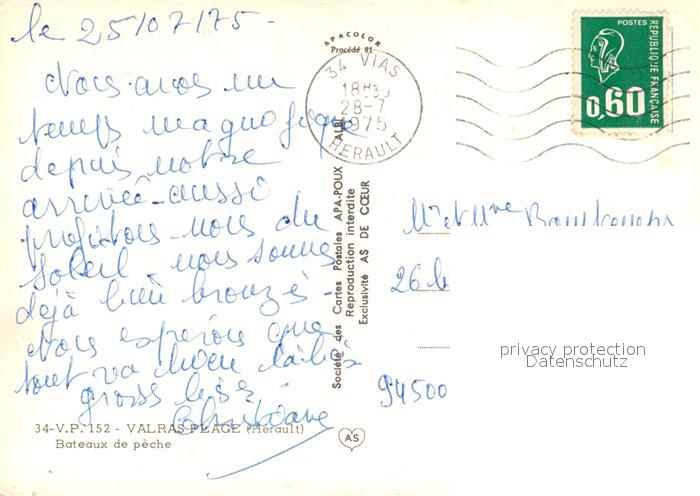 le 25/07/75-
Nous avons un
temps magnifique
depuis notre
arrivée - aussi
profitons-nous du
soleil - nous sommes
déjà bien bronzés -
Nous espérons que
tout va bien là-bas
gross bises -
Christiane
34-V.P. 152 - VALRAS-PLAGE (Hérault)
Bateaux de pêche
APACOLOR
Procédé 81
ALBI
Société des Cartes Postales APA-POUX
Reproduction interdite
Exclusivité AS DE CŒUR
AS
34 VIAS
18H30
28-7
1975
HERAULT
POSTES
REPUBLIQUE FRANÇAISE
0,60
Mr et Mme
26
94500
privacy protection
Datenschutz